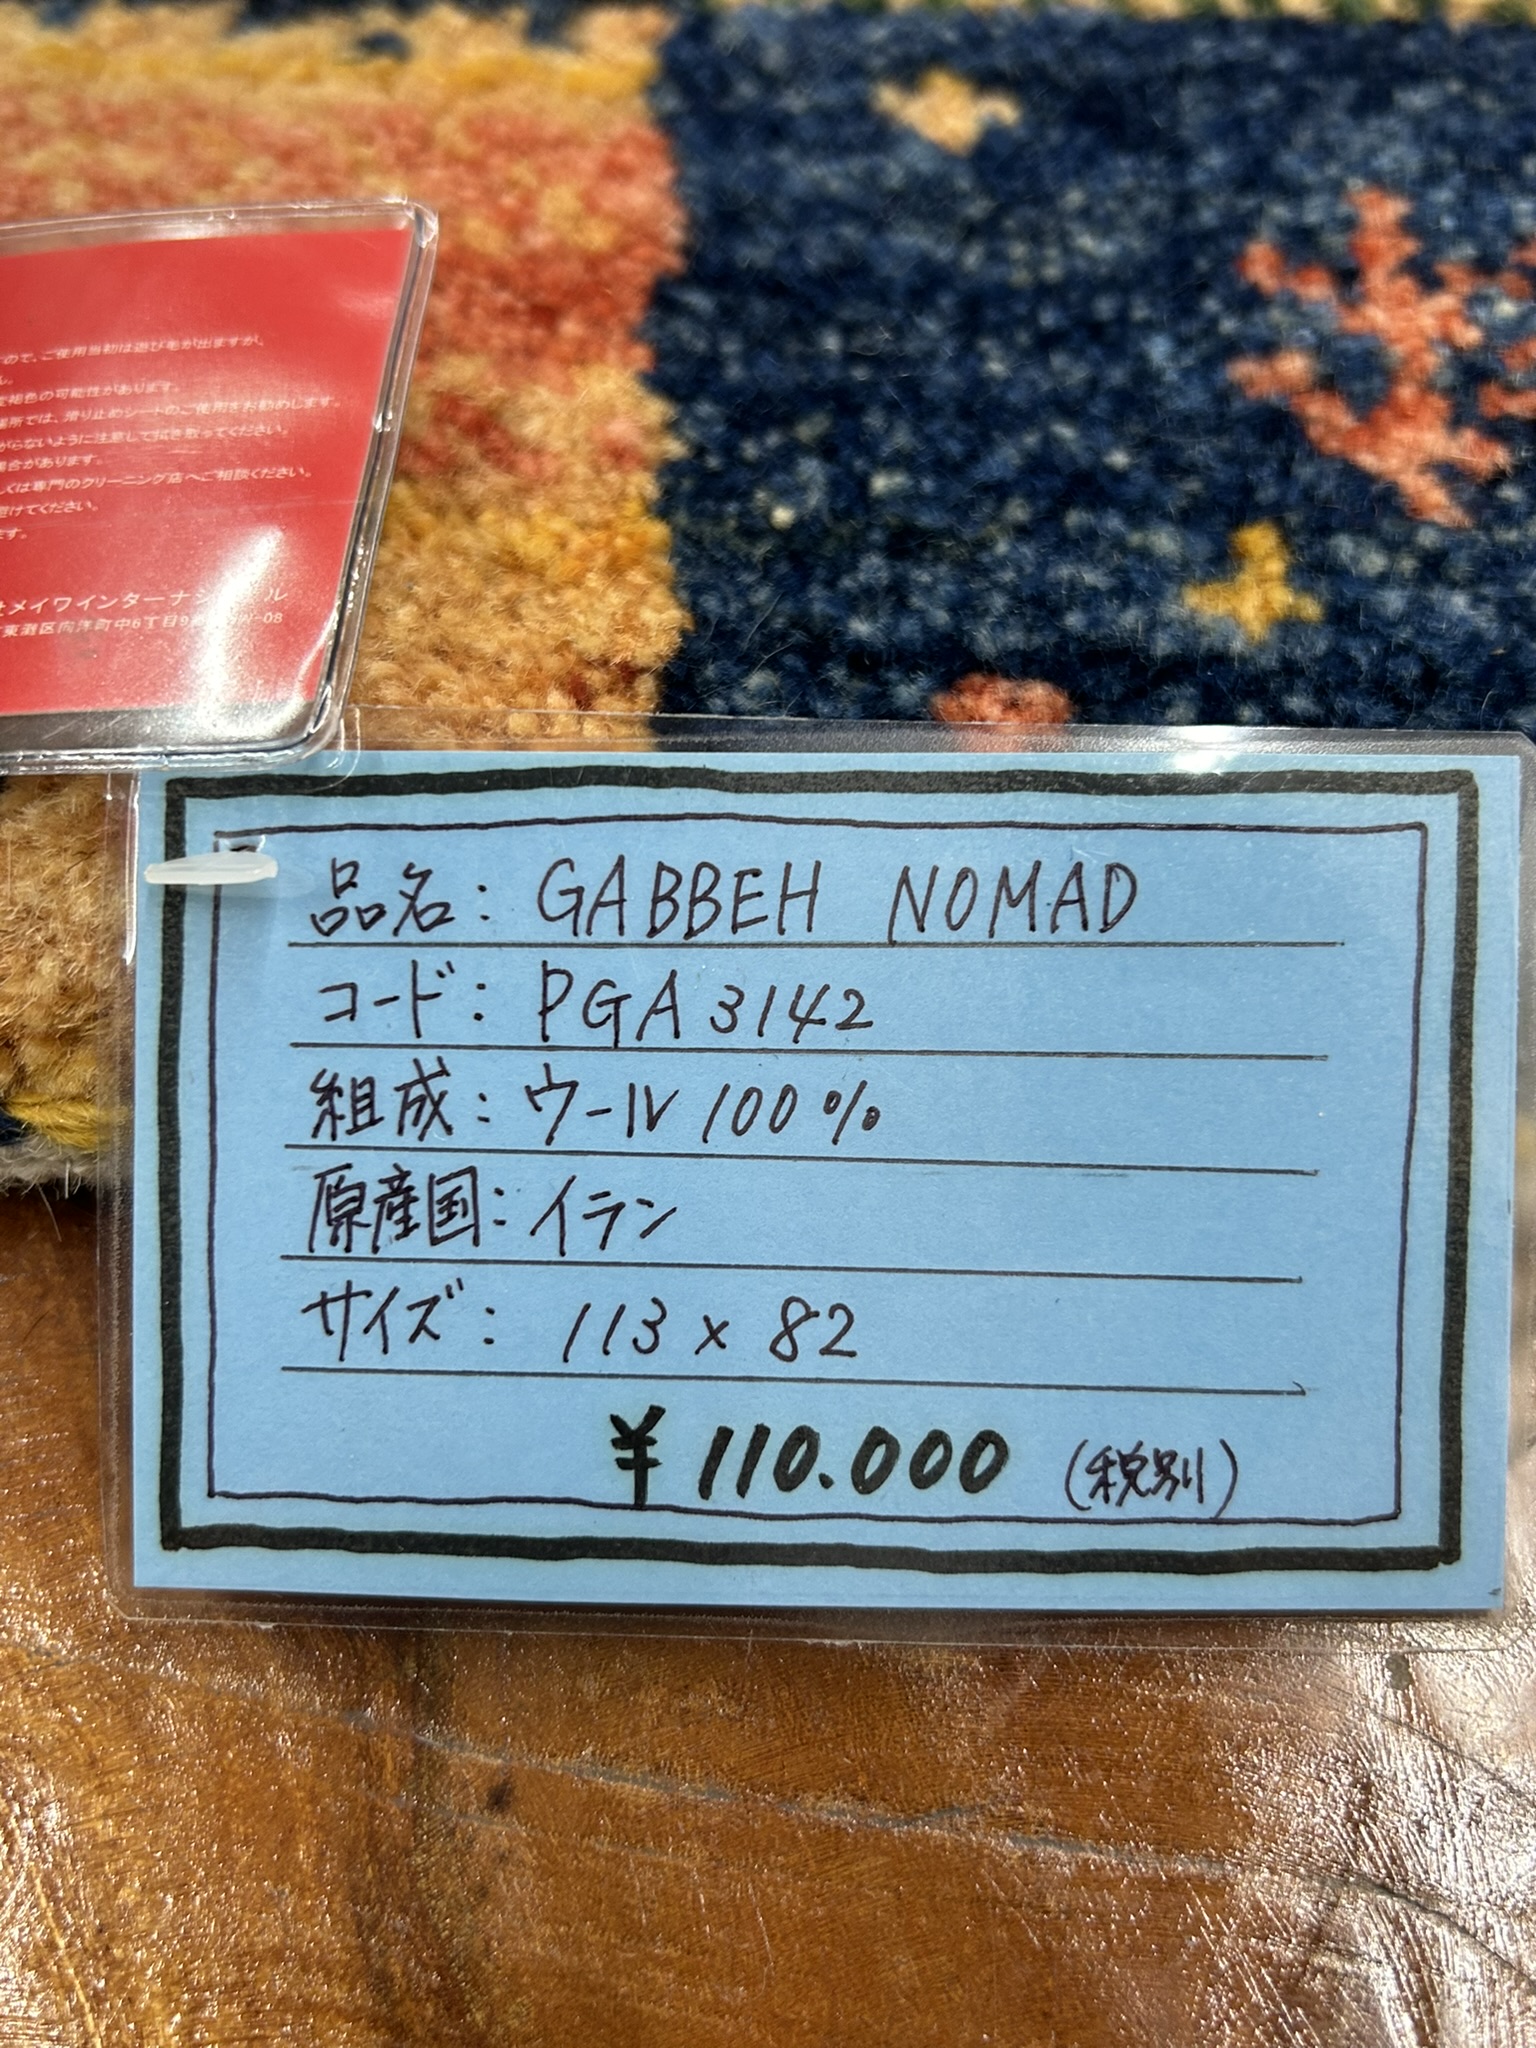 ので、ご使用当初は遊び毛が出ますが、
褪色の可能性があります。
場所では、滑り止めシートのご使用をお勧めします。
がらないように注意して拭き取ってください。
場合があります。
くは専門のクリーニング店へご相談ください。
避けてください。
ます。
メイワインターナショナル
東灘区向洋町中6丁目9
W-08
品名: GABBEH NOMAD
コード: PGA 3142
組成: ウール 100%
原産国: イラン
サイズ: 113 x 82
¥ 110.000 (税別)